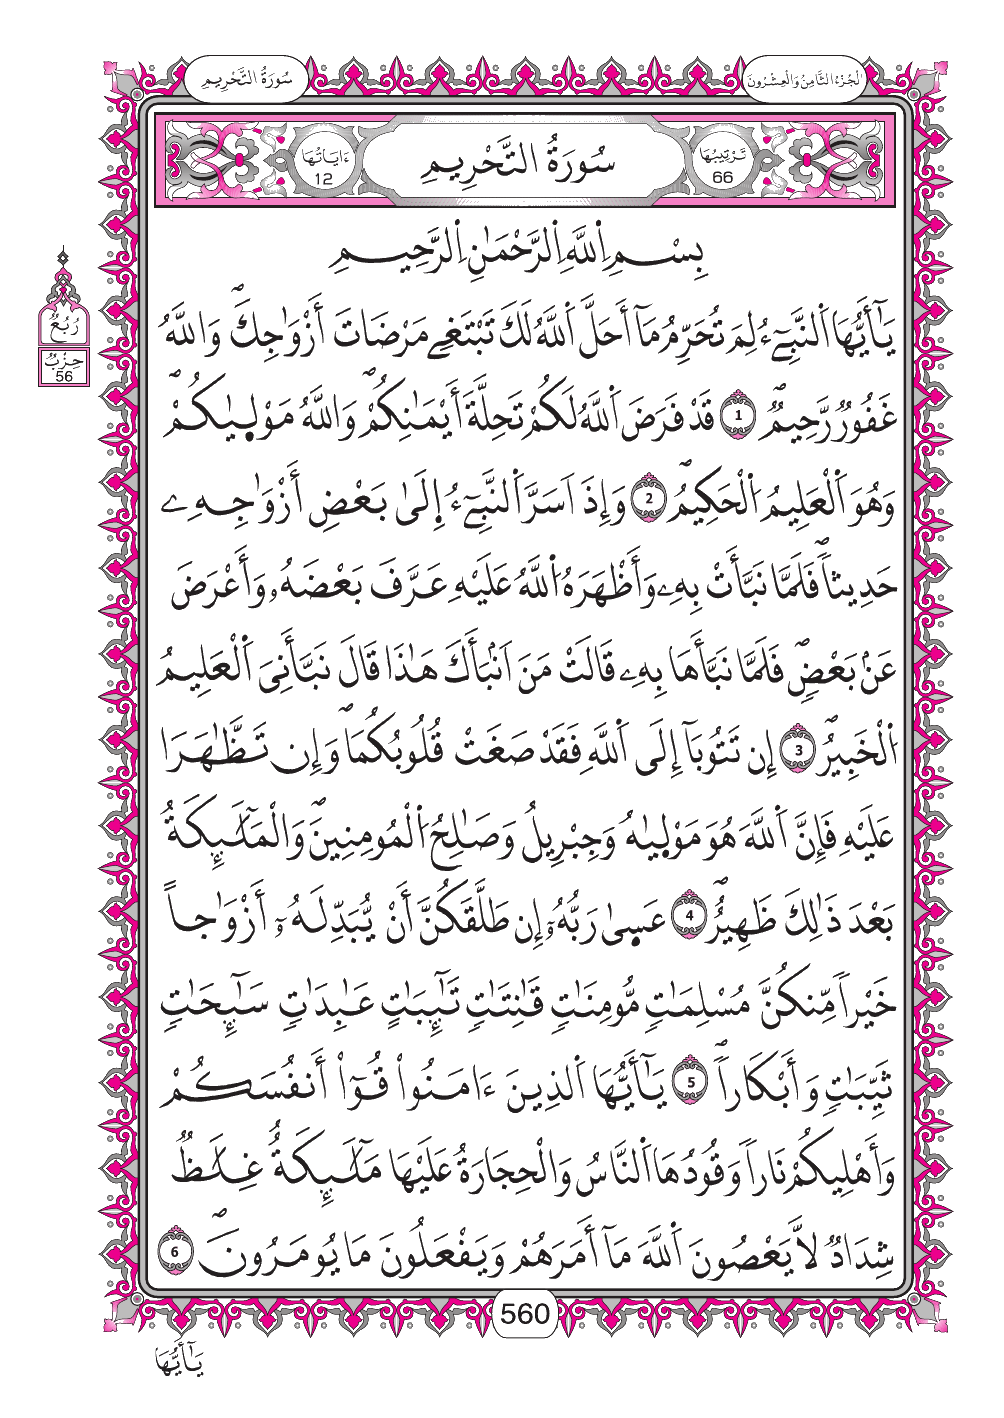 الْجُزْءُ الثَّامِنُ وَالْعِشْرُونَ
سُورَةُ التَّحْرِيمِ
تَرْتِيبُهَا
66
سُورَةُ التَّحْرِيمِ
ءَايَاتُهَا
12
بِسْمِ اِ۬للَّهِ اِ۬لرَّحْمَٰنِ اِ۬لرَّحِيمِ
يَٰٓأَيُّهَا اَ۬لنَّبِےٓءُ لِمَ تُحَرِّمُ مَآ أَحَلَّ اَ۬للَّهُ لَكَ تَبْتَغِے مَرْضَاتَ أَزْوَٰجِكَۖ وَاللَّهُ
غَفُورٞ رَّحِيمٞۖ 1 قَدْ فَرَضَ اَ۬للَّهُ لَكُمْ تَحِلَّةَ أَيْمَٰنِكُمْۖ وَاللَّهُ مَوْل۪يٰكُمْۖ
رُبُعُ
حِزْبُ
56
وَهُوَ اَ۬لْعَلِيمُ اُ۬لْحَكِيمُۖ 2 وَإِذَ اَسَرَّ اَ۬لنَّبِےٓءُ إِلَىٰ بَعْضِ أَزْوَٰجِهِۦ
حَدِيثاٗۖ فَلَمَّا نَبَّأَتْ بِهِۦ وَأَظْهَرَهُ اُ۬للَّهُ عَلَيْهِ عَرَّفَ بَعْضَهُۥ وَأَعْرَضَ
عَنۢ بَعْضٖۖ فَلَمَّا نَبَّأَهَا بِهِۦ قَالَتْ مَنَ اَنۢبَأَكَ هَٰذَا قَالَ نَبَّأَنِيَ اَ۬لْعَلِيمُ
اُ۬لْخَبِيرُۖ 3 إِن تَتُوبَآ إِلَى اَ۬للَّهِ فَقَدْ صَغَتْ قُلُوبُكُمَاۖ وَإِن تَظَّٰهَرَا
عَلَيْهِ فَإِنَّ اَ۬للَّهَ هُوَ مَوْل۪يٰهُ وَجِبْرِيلُ وَصَٰلِحُ اُ۬لْمُومِنِينَۖ وَالْمَلَٰٓئِكَةُ
بَعْدَ ذَٰلِكَ ظَهِيرٌۖ 4 عَس۪يٰ رَبُّهُۥٓ إِن طَلَّقَكُنَّ أَنْ يُّبَدِّلَهُۥٓ أَزْوَٰجاً
خَيْراٗ مِّنكُنَّ مُسْلِمَٰتٖ مُّومِنَٰتٖ قَٰنِتَٰتٖ تَٰٓئِبَٰتٍ عَٰبِدَٰتٖ سَٰٓئِحَٰتٖ
ثَيِّبَٰتٖ وَأَبْكَاراٗۖ 5 يَٰٓأَيُّهَا اَ۬لذِينَ ءَامَنُواْ قُوٓاْ أَنفُسَكُمْ
وَأَهْلِيكُمْ نَاراٗ وَقُودُهَا اَ۬لنَّاسُ وَالْحِجَارَةُ عَلَيْهَا مَلَٰٓئِكَةٌ غِلَٰظٞ
شِدَادٞ لَّا يَعْصُونَ اَ۬للَّهَ مَآ أَمَرَهُمْ وَيَفْعَلُونَ مَا يُومَرُونَۖ 6
560
يَٰٓأَيُّهَا